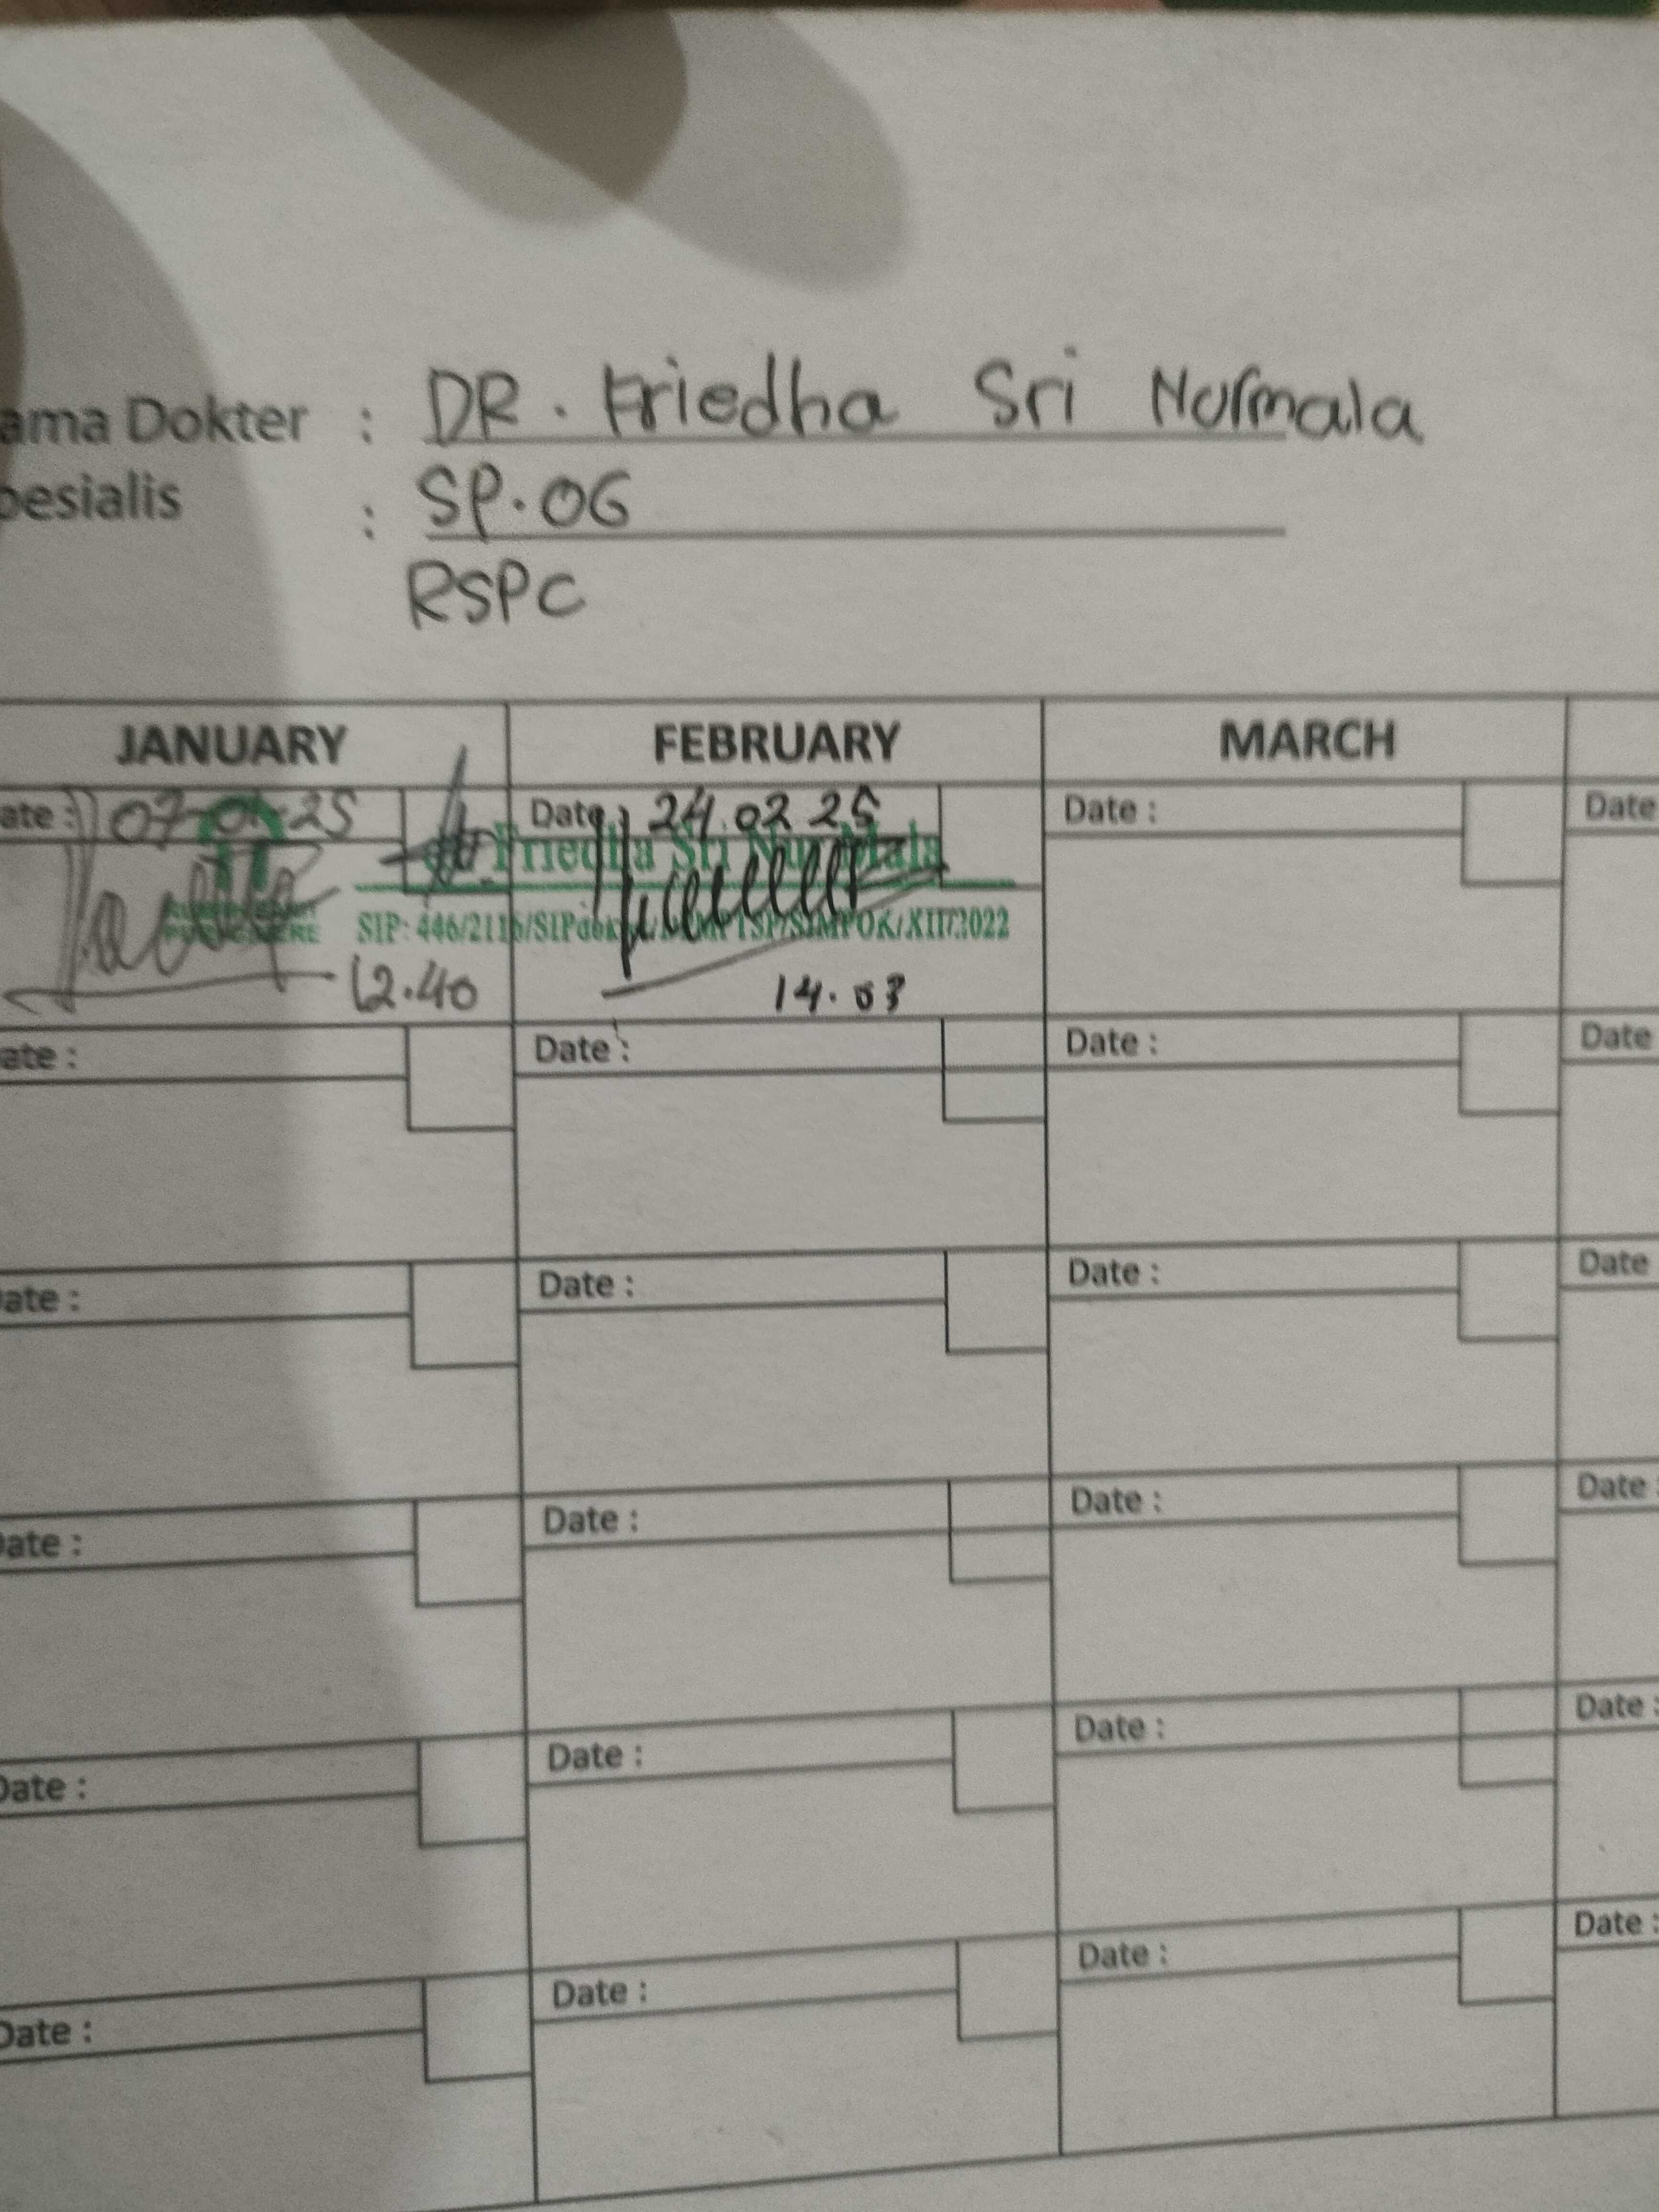 ama Dokter : DR. Friedha Sri Nurmala
pesialis : SP.OG
RSPC
JANUARY FEBRUARY MARCH
ate : 07-01-25 Date : 24.02 25 Date : Date
Friedha Sri Nurmala
SIP: 446/2116/SIPdok /XII/2022
12.40 14.03
ate : Date : Date : Date
ate : Date : Date : Date
Date : Date : Date : Date :
Date : Date : Date : Date :
Date : Date : Date : Date :